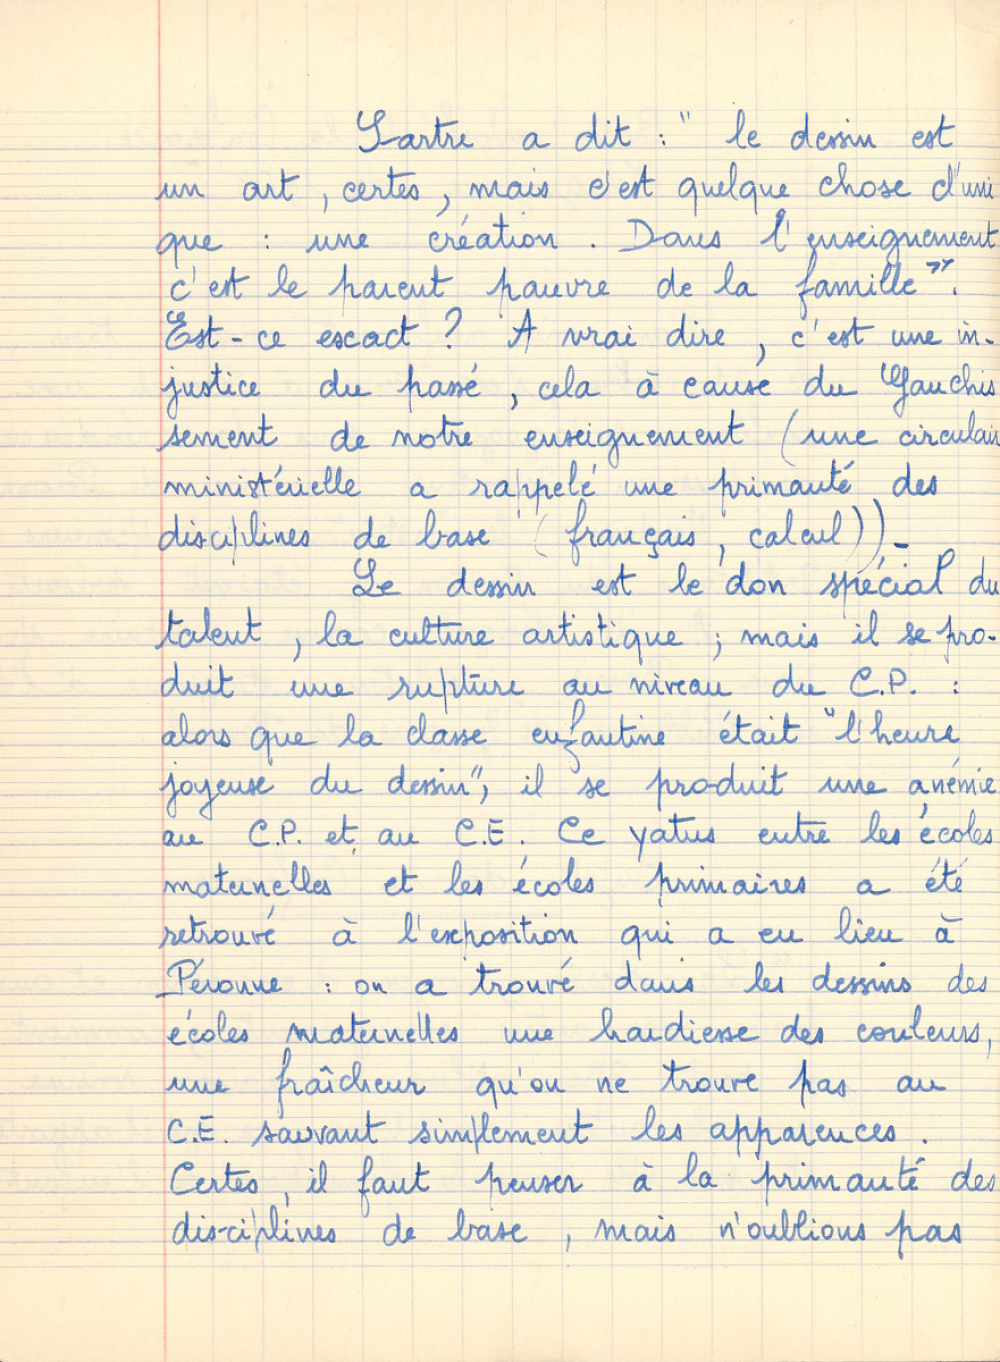 Sartre a dit : " le dessin est
un art , certes , mais c'est quelque chose d'uni
que : une création . Dans l'enseignement
c'est le parent pauvre de la famille ".
Est-ce escact ? A vrai dire , c'est une in-
justice du passé , cela à cause du Gauchis
sement de notre enseignement ( une circulair
ministérielle a rappelé une primauté des
disciplines de base ( français , calcul)).
Le dessin est le don spécial du
talent , la culture artistique ; mais il se pro-
duit une rupture au niveau du C.P. :
alors que la classe enfantine était "l'heure
joyeuse du dessin", il se produit une anémie
au C.P. et au C.E. Ce yatus entre les écoles
maternelles et les écoles primaires a été
retrouvé à l'exposition qui a eu lieu à
Péronne : on a trouvé dans les dessins des
écoles maternelles une hardiesse des couleurs,
une fraîcheur qu'on ne trouve pas au
C.E. sauvant simplement les apparences .
Certes , il faut penser à la primauté des
disciplines de base , mais n'oublions pas